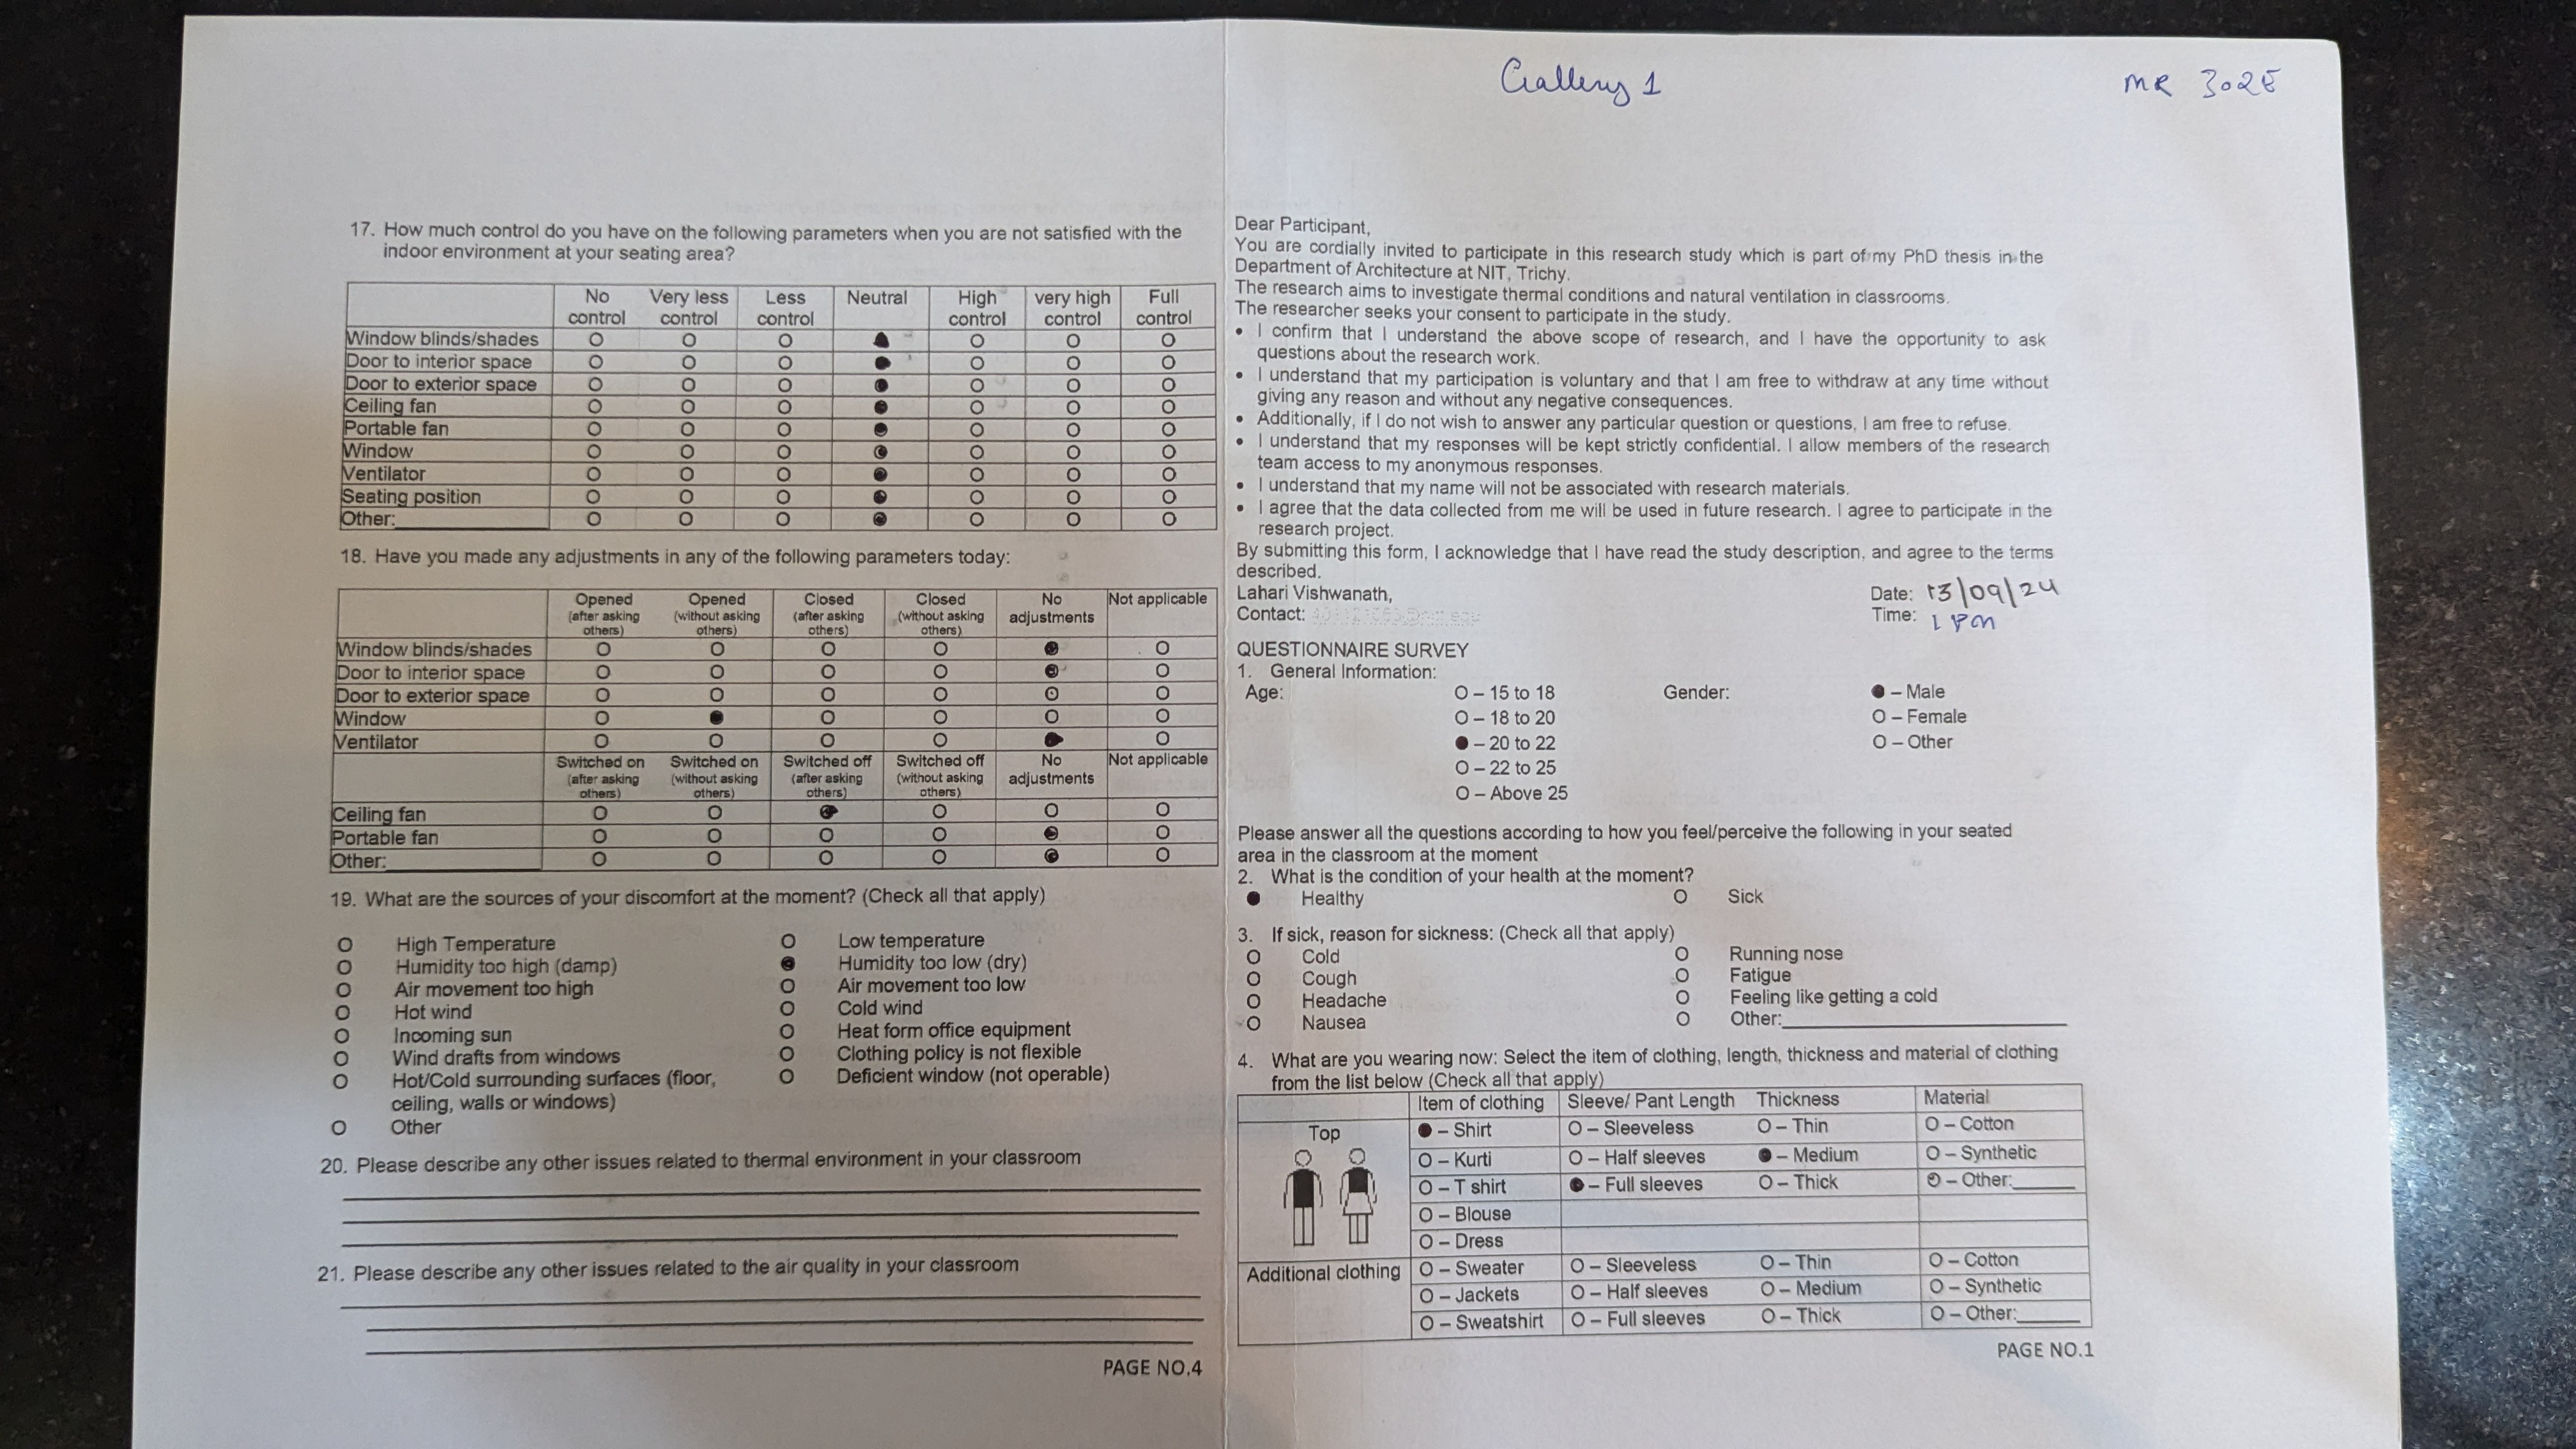 Gallery 1
MR 302E
17. How much control do you have on the following parameters when you are not satisfied with the
indoor environment at your seating area?
No control Very less control Less control Neutral High control very high control Full control
Window blinds/shades O O O ● O O O
Door to interior space O O O ● O O O
Door to exterior space O O O ● O O O
Ceiling fan O O O ● O O O
Portable fan O O O ● O O O
Window O O O ● O O O
Ventilator O O O ● O O O
Seating position O O O ● O O O
Other:__________ O O O ● O O O
18. Have you made any adjustments in any of the following parameters today:
Opened (after asking others) Opened (without asking others) Closed (after asking others) Closed (without asking others) No adjustments Not applicable
Window blinds/shades O O O O ● O
Door to interior space O O O O ● O
Door to exterior space O O O O ⊙ O
Window O ● O O O O
Ventilator O O O O ● O
Switched on (after asking others) Switched on (without asking others) Switched off (after asking others) Switched off (without asking others) No adjustments Not applicable
Ceiling fan O O ● O O O
Portable fan O O O O ● O
Other:__________ O O O O ● O
19. What are the sources of your discomfort at the moment? (Check all that apply)
O High Temperature O Low temperature
O Humidity too high (damp) ● Humidity too low (dry)
O Air movement too high O Air movement too low
O Hot wind O Cold wind
O Incoming sun O Heat form office equipment
O Wind drafts from windows O Clothing policy is not flexible
O Hot/Cold surrounding surfaces (floor, O Deficient window (not operable)
ceiling, walls or windows)
O Other
20. Please describe any other issues related to thermal environment in your classroom
21. Please describe any other issues related to the air quality in your classroom
PAGE NO.4
Dear Participant,
You are cordially invited to participate in this research study which is part of my PhD thesis in the
Department of Architecture at NIT, Trichy.
The research aims to investigate thermal conditions and natural ventilation in classrooms.
The researcher seeks your consent to participate in the study.
• I confirm that I understand the above scope of research, and I have the opportunity to ask
questions about the research work.
• I understand that my participation is voluntary and that I am free to withdraw at any time without
giving any reason and without any negative consequences.
• Additionally, if I do not wish to answer any particular question or questions, I am free to refuse.
• I understand that my responses will be kept strictly confidential. I allow members of the research
team access to my anonymous responses.
• I understand that my name will not be associated with research materials.
• I agree that the data collected from me will be used in future research. I agree to participate in the
research project.
By submitting this form, I acknowledge that I have read the study description, and agree to the terms
described.
Lahari Vishwanath, Date: 13/09/24
Contact: Time: 1 PM
QUESTIONNAIRE SURVEY
1. General Information:
Age: O – 15 to 18 Gender: ● – Male
O – 18 to 20 O – Female
● – 20 to 22 O – Other
O – 22 to 25
O – Above 25
Please answer all the questions according to how you feel/perceive the following in your seated
area in the classroom at the moment
2. What is the condition of your health at the moment?
● Healthy O Sick
3. If sick, reason for sickness: (Check all that apply)
O Cold O Running nose
O Cough O Fatigue
O Headache O Feeling like getting a cold
O Nausea O Other:__________
4. What are you wearing now: Select the item of clothing, length, thickness and material of clothing
from the list below (Check all that apply)
Item of clothing Sleeve/ Pant Length Thickness Material
Top ● – Shirt O – Sleeveless O – Thin O – Cotton
O – Kurti O – Half sleeves ● – Medium O – Synthetic
O – T shirt ● – Full sleeves O – Thick ⊙ – Other:______
O – Blouse
O – Dress
Additional clothing O – Sweater O – Sleeveless O – Thin O – Cotton
O – Jackets O – Half sleeves O – Medium O – Synthetic
O – Sweatshirt O – Full sleeves O – Thick O – Other:______
PAGE NO.1